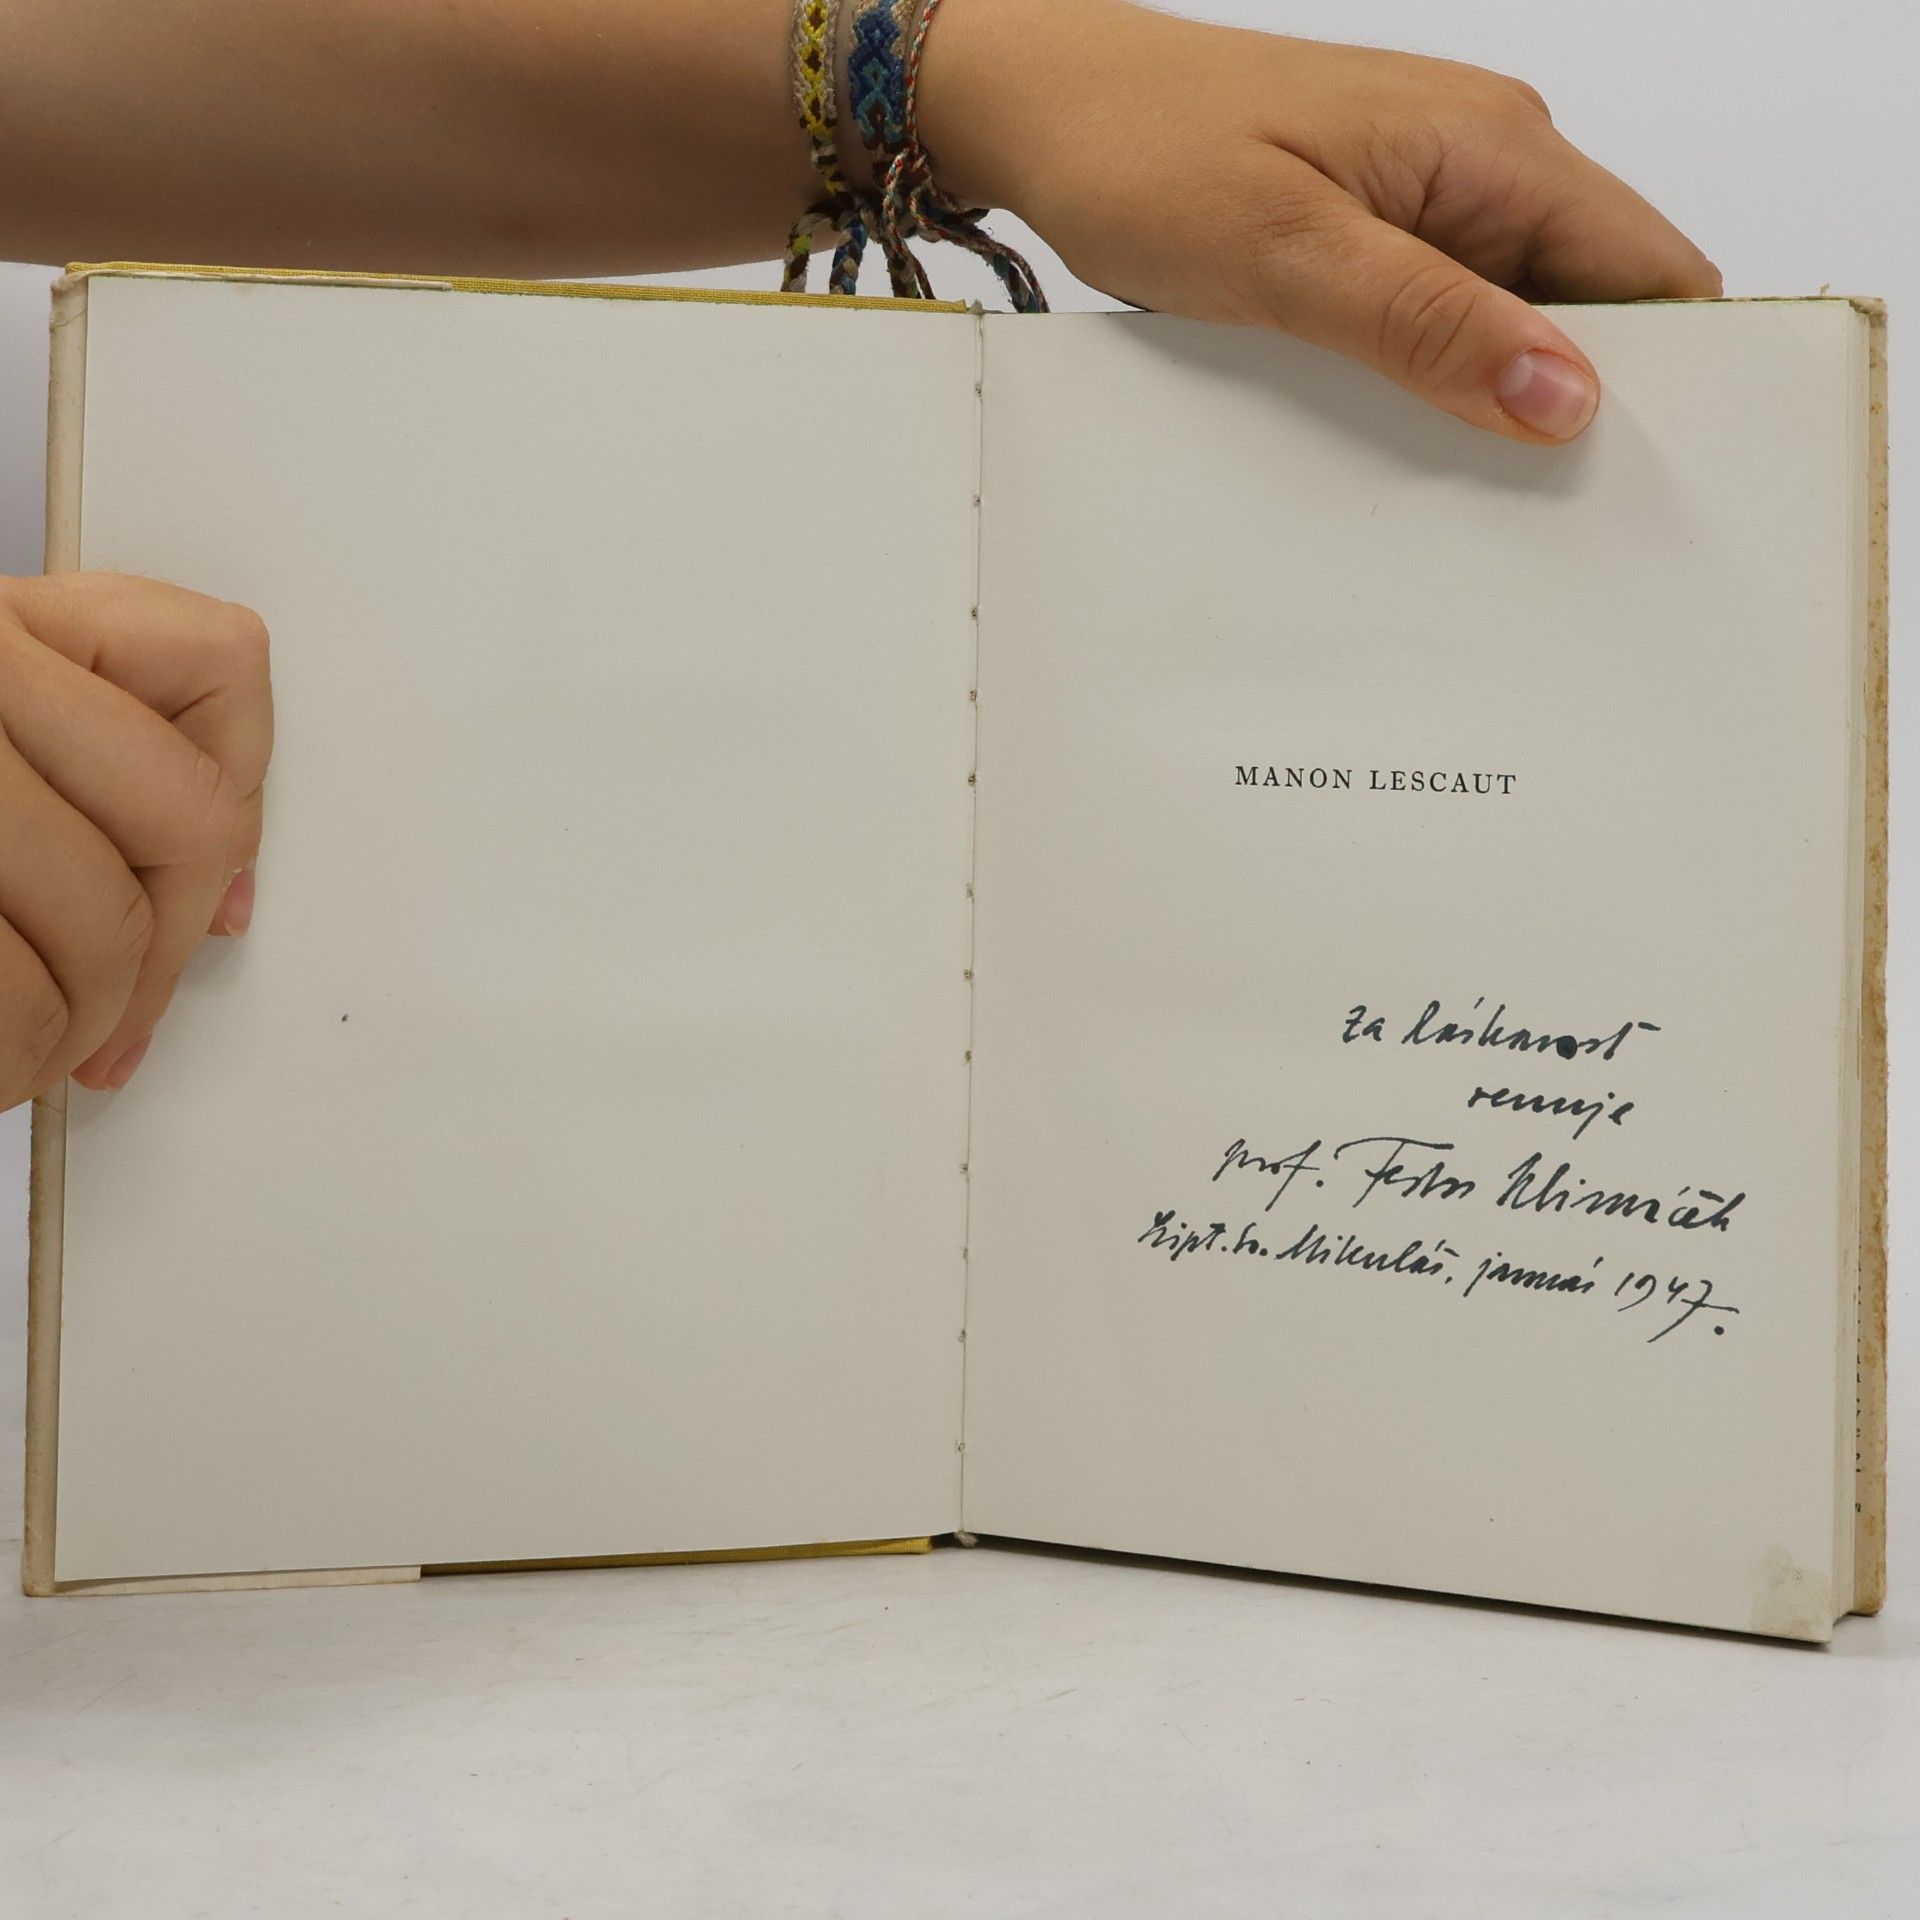 MANON LESCAUT
Za láskavosť
venuje
prof. Fedor Klimáček
Lipt. Sv. Mikuláš, január 1947.